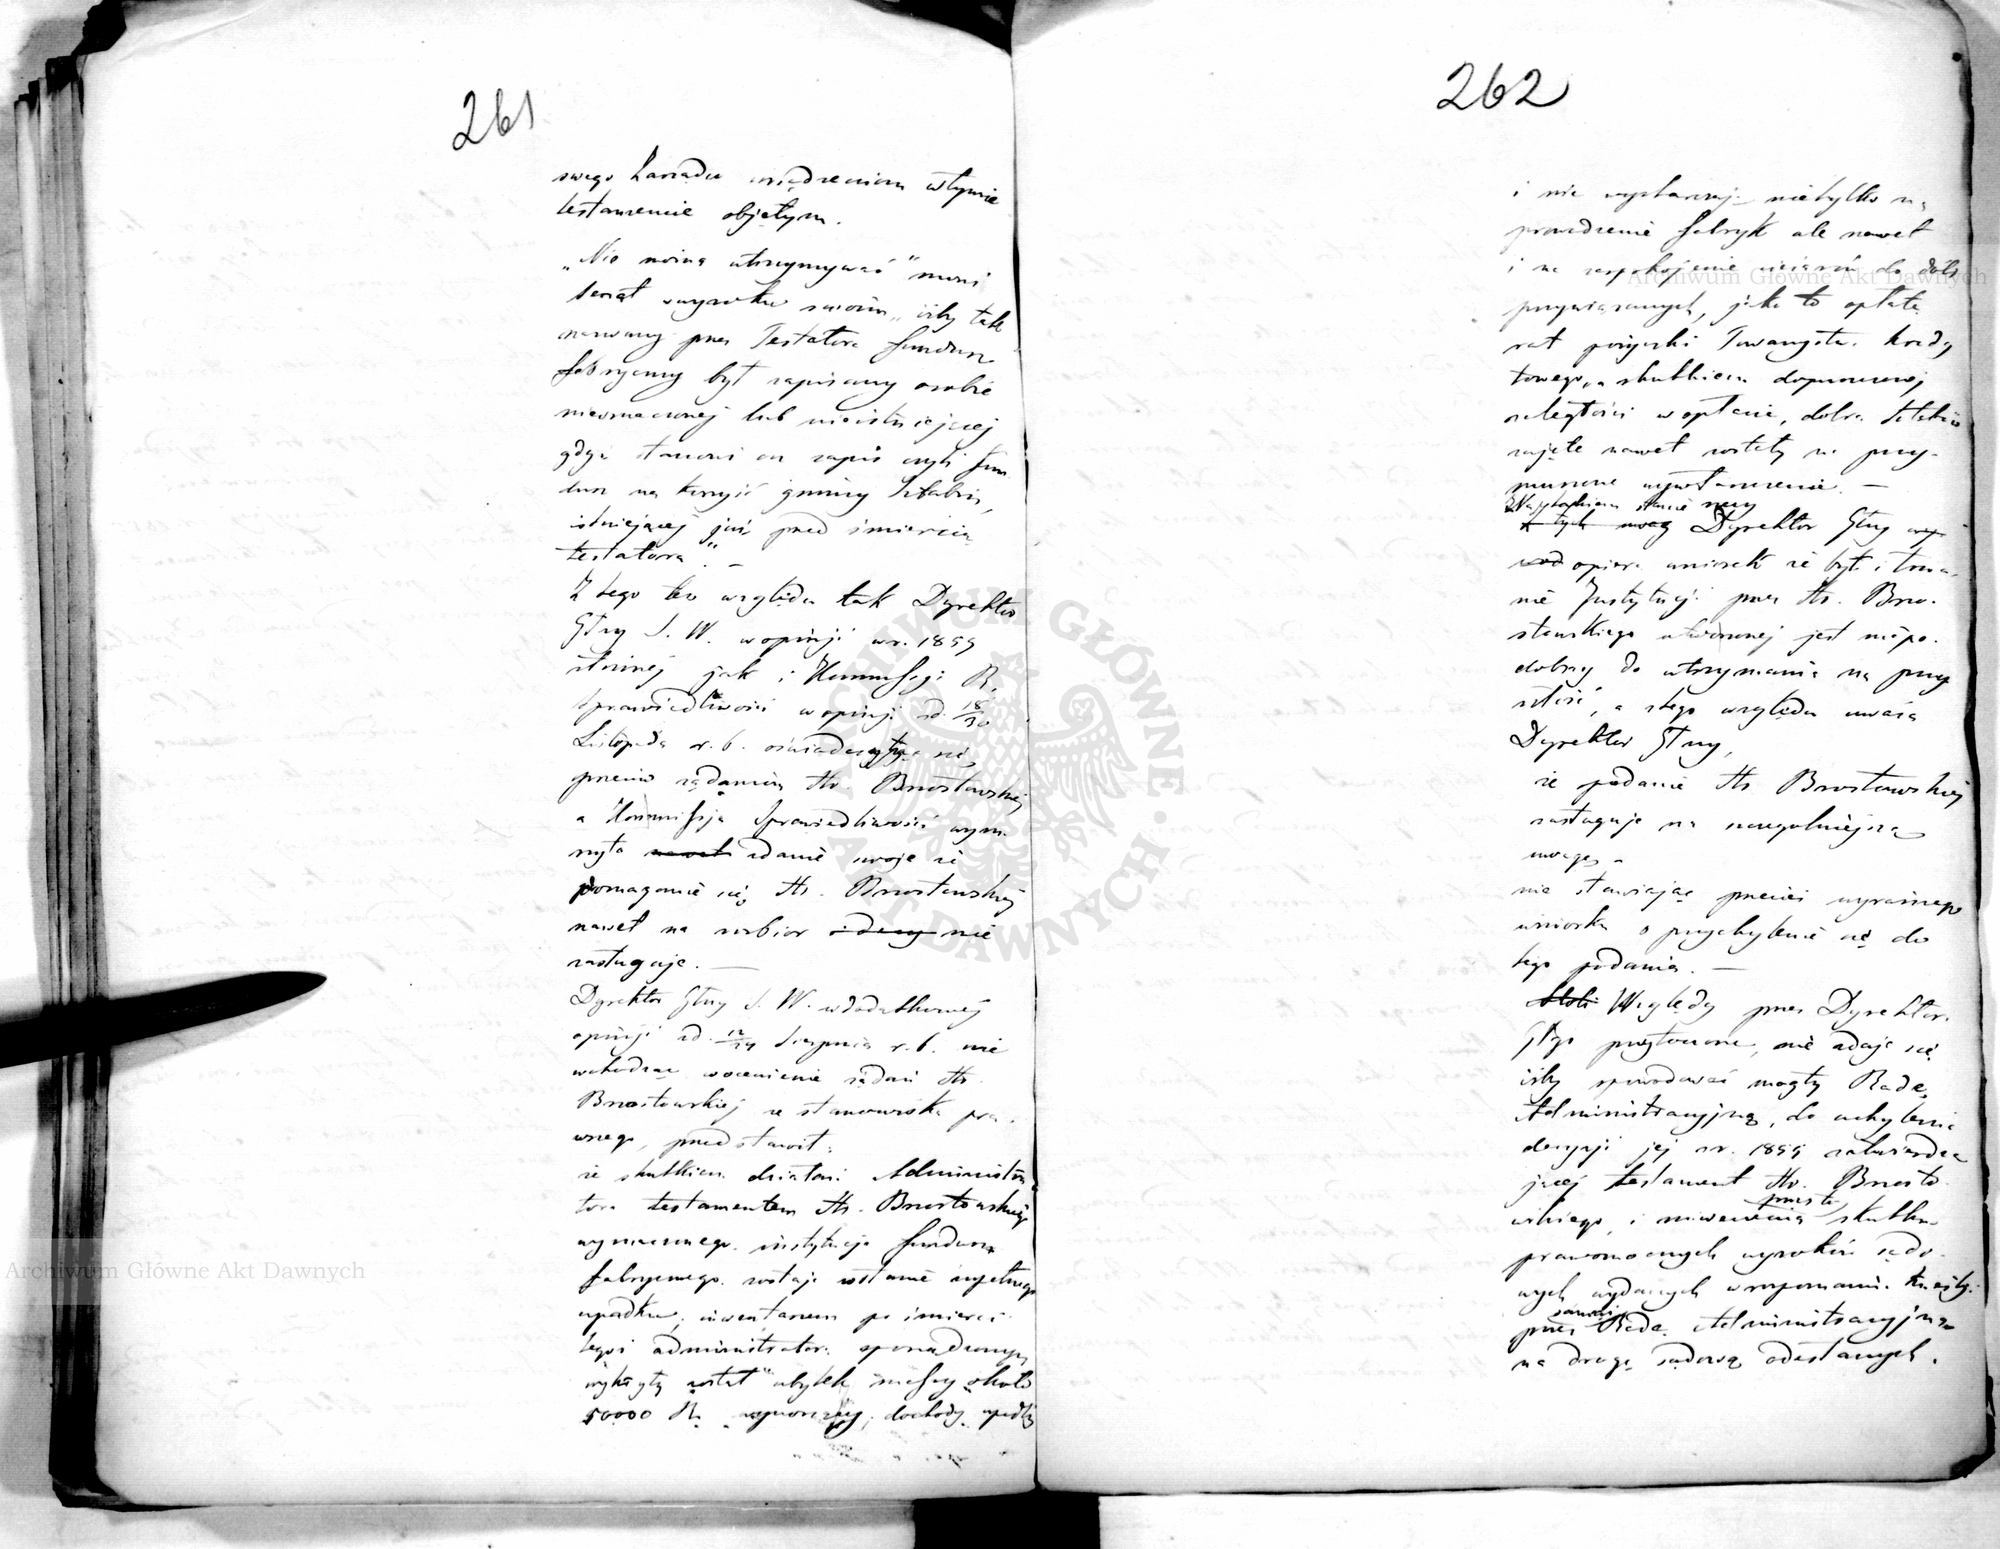 261
swego Zarządu urządzeniom w tymże
testamencie objętym.
„Nie można utrzymywać" mówi
Senat wyroku swoim „iżby tak
nazwany przez Testatora fundusz
fabryczny był zapisany osobie
nieoznaczonej lub nieistniejącej
gdyż stanowi on zapis czyli fun
dusz na korzyść gminy Sztabin,
istniejącej już przed śmiercią
testatora". —
Z tego też względu tak Dyrektor
Głny S. W. w opinji w r. 1859
złożonej jak i Kommissji R.
Sprawiedliwości w opinji z d. 18/30
Listopada r. b. oświadczyły się
przeciw żądaniu Hr. Brzostowskiej,
a Kommissja Sprawiedliwości wyrze
kła zdanie swoje że
domaganie się Hr. Brzostowskiej
nawet na rozbiór nie
zasługuje. —
Dyrektor Głny S. W. w dodatkowej
opinji z d. 12/24 Sierpnia r. b. nie
wchodząc w ocenienie żądań Hr.
Brzostowskiej ze stanowiska pra
wnego, przedstawił:
że skutkiem działań Administra
tora testamentem Hr. Brzostowskiego
wyznaczonego instytucja funduszu
fabrycznego zostaje w stanie zupełnego
upadku; inwentarzem po śmierci
tegoż administratora sporządzonym
wykryty został ubytek massy około
50000 Rs. wynoszący; dochody upadły
262
i nie wystarczają nietylko na
prowadzenie fabryk ale nawet
i na zaspokojenie ciężarów do dóbr
przywiązanych, jako to opłatę
rat pożyczki Towarzystwa kredy
towego, a skutkiem dopuszczonej
zaległości w opłacie, dobra Sztabin
zajęte nawet zostały na przy-
muszone wywłaszczenie. —
W takim stanie rzeczy
z tych uwag Dyrektor Głny wy
wod opiera wniosek że byt i trwa
nie Instytucji przez Hr. Brzo-
stowskiego utworzonej jest niepo-
dobny do utrzymania na przy
szłość, a z tego względu uważa
Dyrektor Głny,
że podanie Hr. Brzostowskiej
zasługuje na szczególniejszą
uwagę,
nie stawiając przecież wyraźnego
wniosku o przychylenie się do
tego podania. —
Względy przez Dyrektora
Głgo przytoczone, nie zdaje się
iżby spowodować mogły Radę
Administracyjną, do uchylenia
decyzji jej z r. 1855 zatwierdza
jącej testament Hr. Brzosto
wskiego, i zniweczenia przez to skutku
prawomocnych wyroków sądo-
wych wydanych w rozpoznaniu kwestji
przez samąż Radę Administracyjną
na drogę sądową odesłanych.